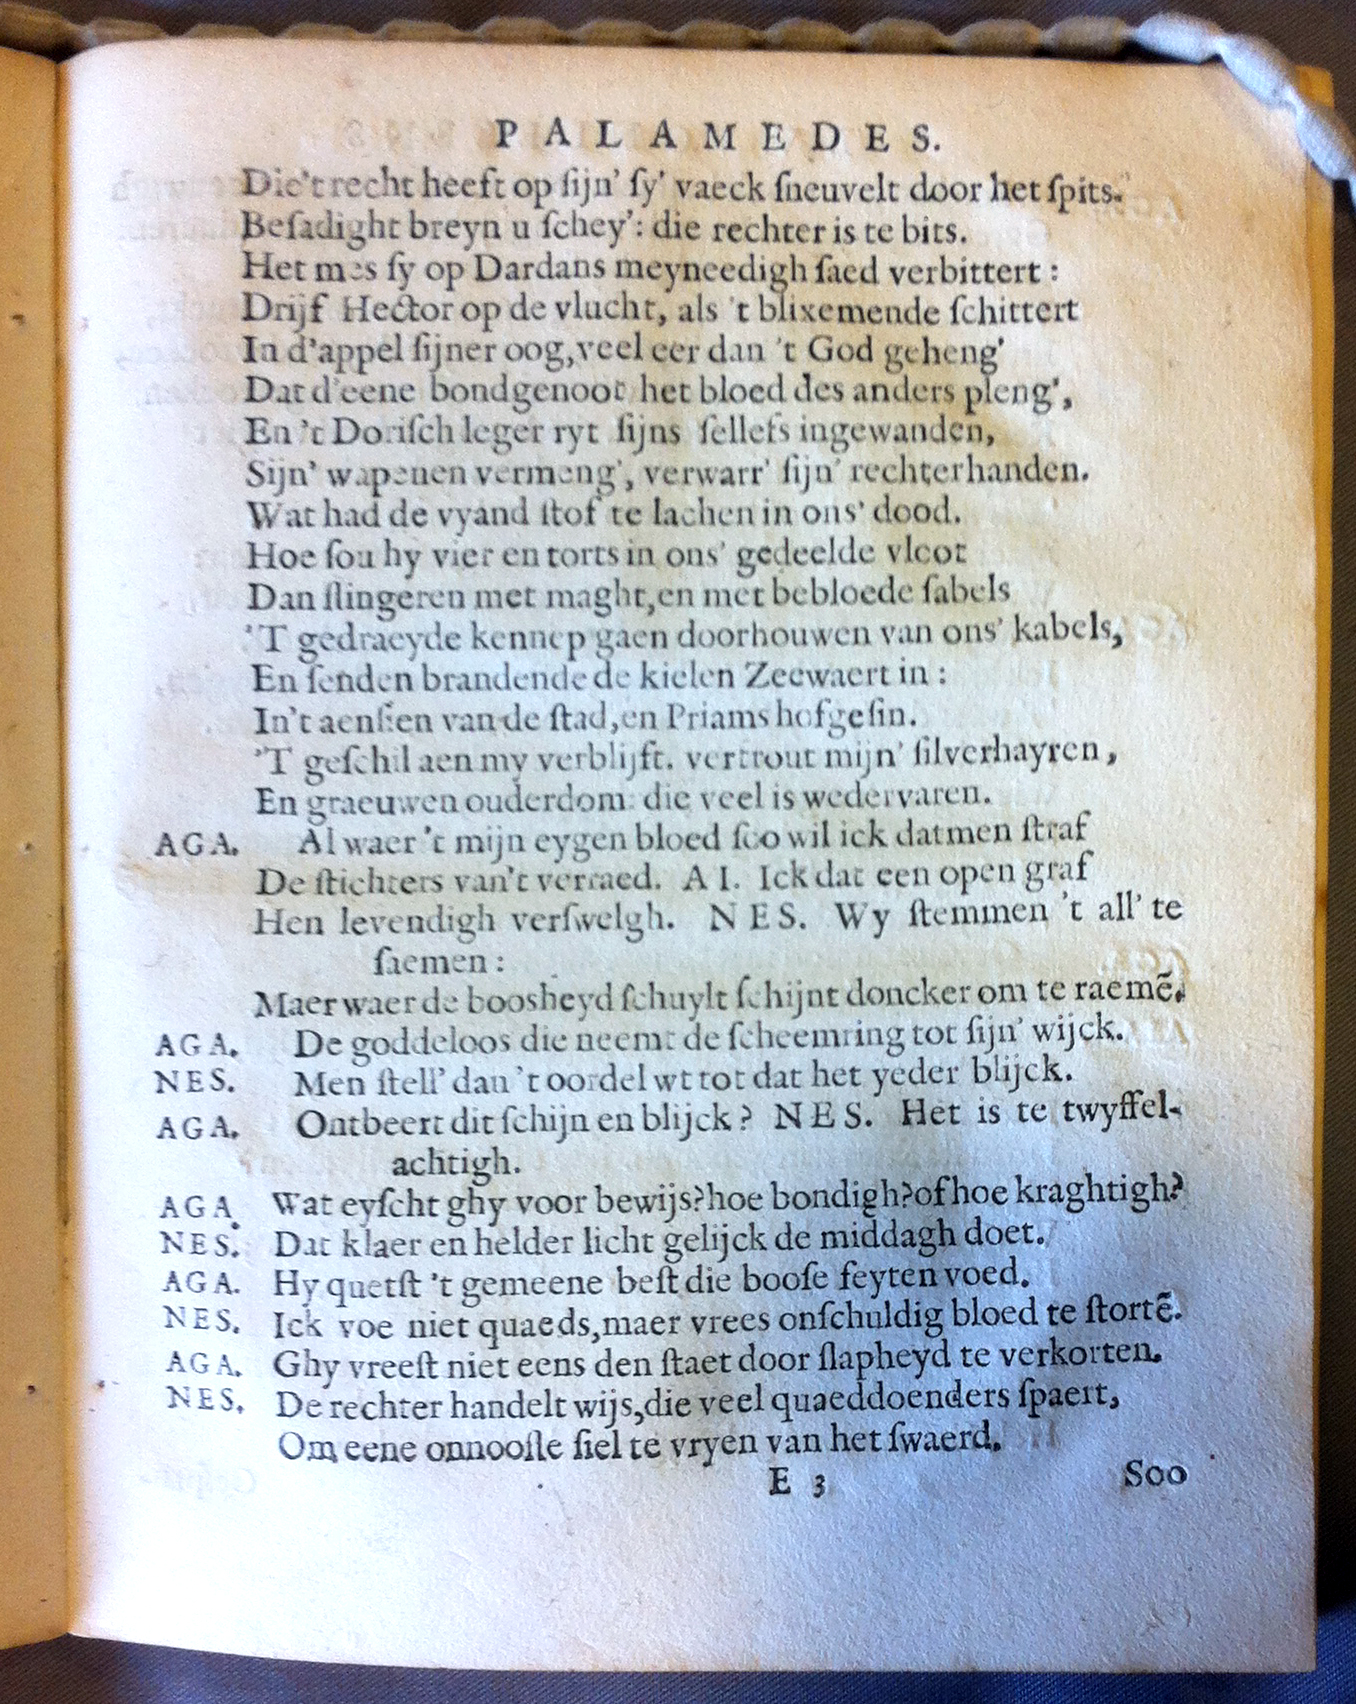 PALAMEDES.
Die't recht heeft op ſijn' ſy' vaeck ſneuvelt door het ſpits.
Beſadight breyn u ſchey': die rechter is te bits.
Het mes ſy op Dardans meyneedigh ſaed verbittert:
Drijf Hector op de vlucht, als 't blixemende ſchittert
In d'appel ſijner oog, veel eer dan 't God geheng'
Dat d'eene bondgenoot het bloed des anders pleng',
En 't Doriſch leger ryt ſijns ſellefs ingewanden,
Sijn' wapenen vermeng', verwarr' ſijn' rechterhanden.
Wat had de vyand ſtof te lachen in ons' dood.
Hoe ſou hy vier en torts in ons' gedeelde vloot
Dan ſlingeren met maght, en met bebloede ſabels
'T gedraeyde kennep gaen doorhouwen van ons' kabels,
En ſenden brandende de kielen Zeewaert in:
In't aenſien van de ſtad, en Priams hofgeſin.
'T geſchil aen my verblijft. vertrout mijn' ſilverhayren,
En graeuwen ouderdom: die veel is wedervaren.
AGA. Al waer 't mijn eygen bloed ſoo wil ick datmen ſtraf
De ſtichters van't verraed. AI. Ick dat een open graf
Hen levendigh verſwelgh. NES. Wy ſtemmen 't all' te
ſaemen:
Maer waer de boosheyd ſchuylt ſchijnt doncker om te raemē.
AGA. De goddeloos die neemt de ſcheemring tot ſijn' wijck.
NES. Men ſtell' dan 't oordel wt tot dat het yeder blijck.
AGA. Ontbeert dit ſchijn en blijck? NES. Het is te twyffel-
achtigh.
AGA. Wat eyſcht ghy voor bewijs? hoe bondigh? of hoe kraghtigh?
NES. Dat klaer en helder licht gelijck de middagh doet.
AGA. Hy quetſt 't gemeene beſt die booſe feyten voed.
NES. Ick voe niet quaeds, maer vrees onſchuldig bloed te ſtortē.
AGA. Ghy vreeſt niet eens den ſtaet door ſlapheyd te verkorten.
NES. De rechter handelt wijs, die veel quaeddoenders ſpaert,
Om eene onnooſle ſiel te vryen van het ſwaerd.
E 3 Soo